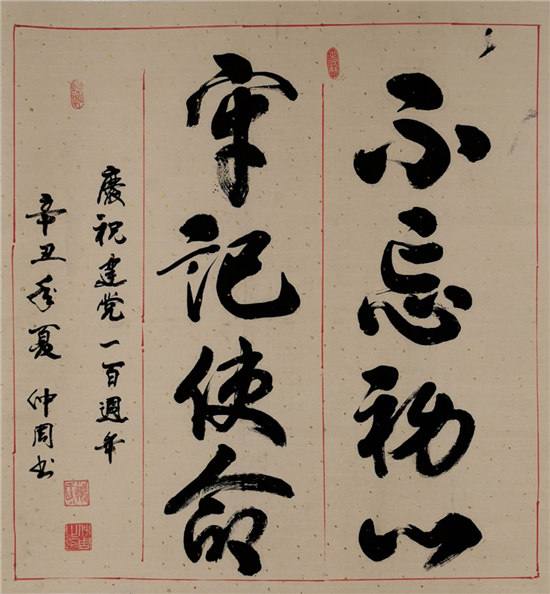 不忘初心
牢记使命
慶祝建党一百週年
辛丑年夏 仲周书